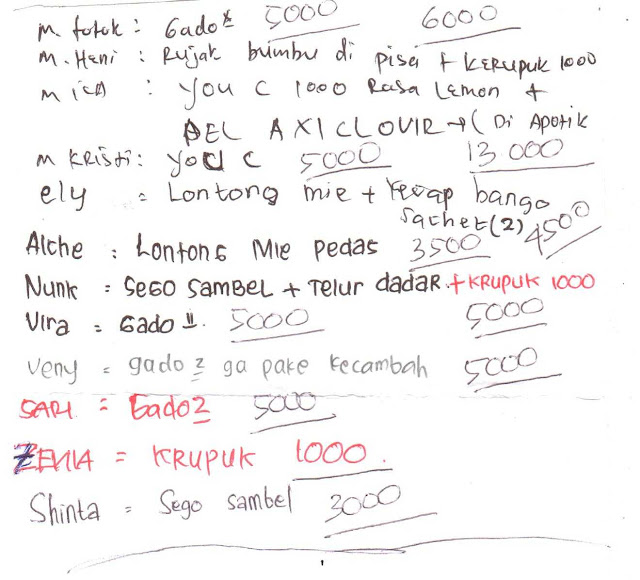 m. totok : Gado² 5000 6000
M. Heni : Rujak bumbu di pisa + KERUPUK 1000
M ICA : You C 1000 Rasa Lemon +
AEL AXICLOVIR → ( Di Apotik
M KRisti : you C 5000 13 000
ely = Lontong mie + kecap bango
sachet (2) 4500
Alche : Lontong Mie Pedas 3500
Nunk = SEGO SAMBEL + TELUR DADAR + KRUPUK 1000
Vira = Gado II. 5000 5000
Veny = gado 2 ga pake kecambah 5000
SARI = Gado2 5000
ZENIA = KRUPUK 1000.
Shinta = Sego sambel 3000